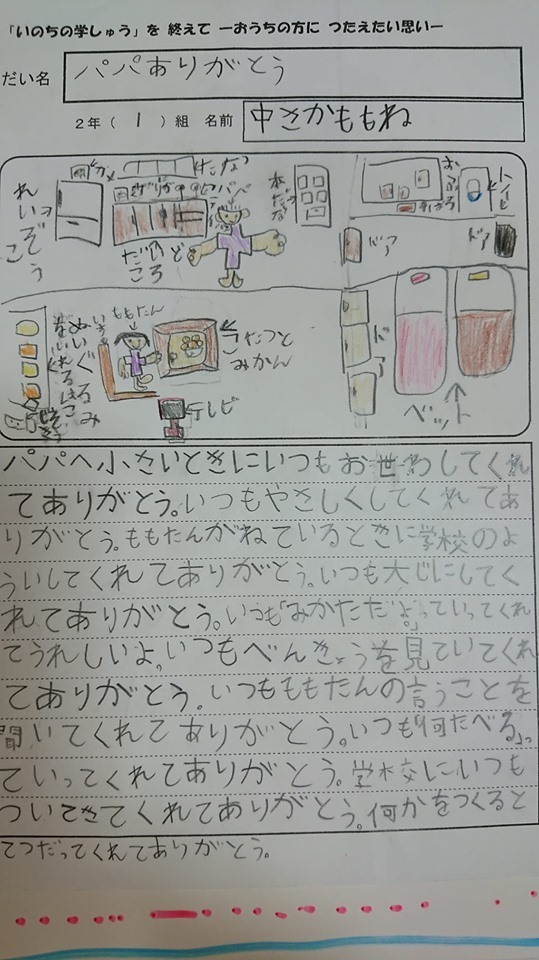 「いのちの学しゅう」を 終えて ーおうちの方に つたえたい思いー
だい名 パパありがとう
2年( 1 )組 名前 中さかももね
れいぞうこ
たな
パパ
だいどころ
本だな
おふろ
トイレ
ドア
ドア
ぬいぐるみ
ももたん
こたつと
みかん
テレビ
ドア
ベット
パパへ小さいときにいつもお世わしてくれ
てありがとう。いつもやさしくしてくれてあ
りがとう。ももたんがねているときに学校のよ
ういしてくれてありがとう。いつも大じにしてく
れてありがとう。いつも「みかただよ。」っていってくれ
てうれしいよ。いつもべんきょうを見ていてくれ
てありがとう。いつもももたんの言うことを
聞いてくれてありがとう。いつも「何たべる」っ
ていってくれてありがとう。学校にいつも
ついてきてくれてありがとう。何かをつくると
てつだってくれてありがとう。